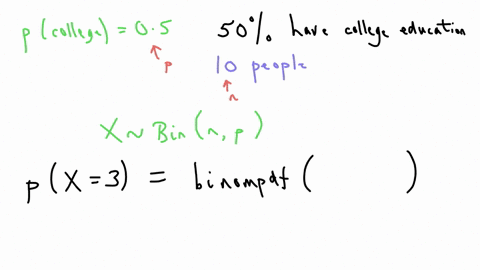 p(college) = 0.5 50% have college education
p 10 people
n
X ~ Bin(n, p)
p(X = 3) = binompdf( )